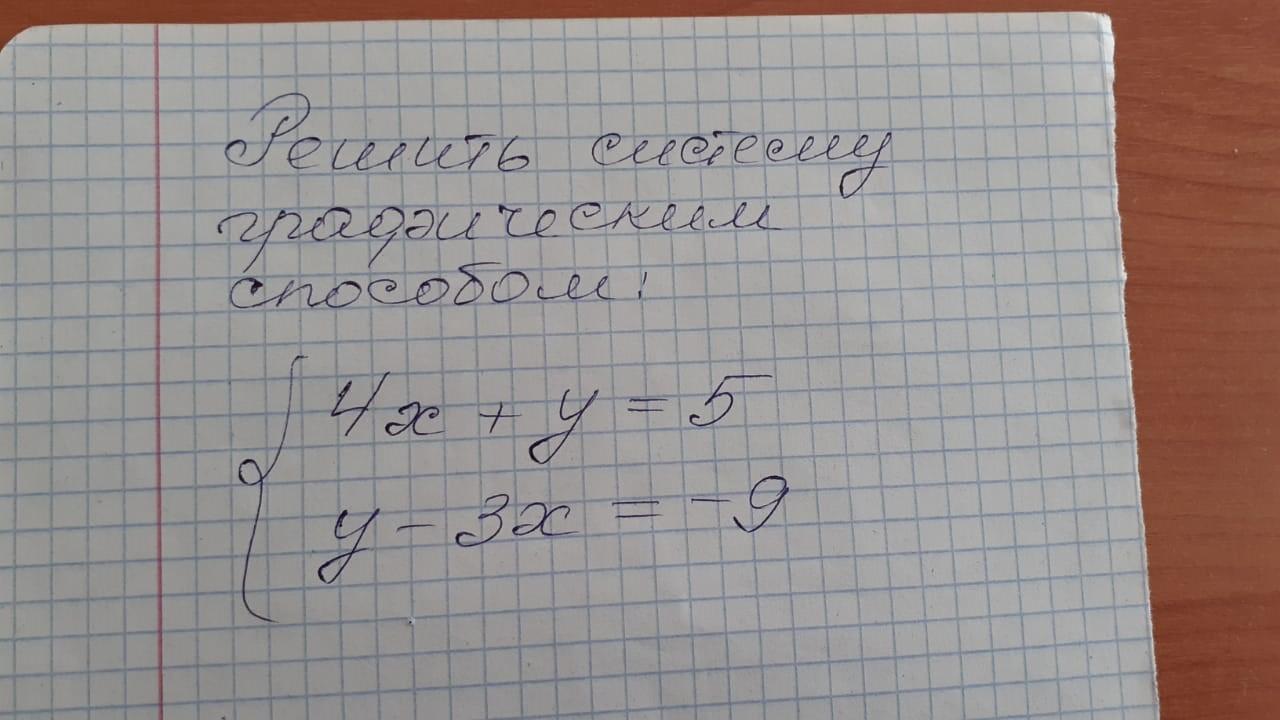 Решить систему
графическим
способом:
4x + y = 5
y - 3x = -9